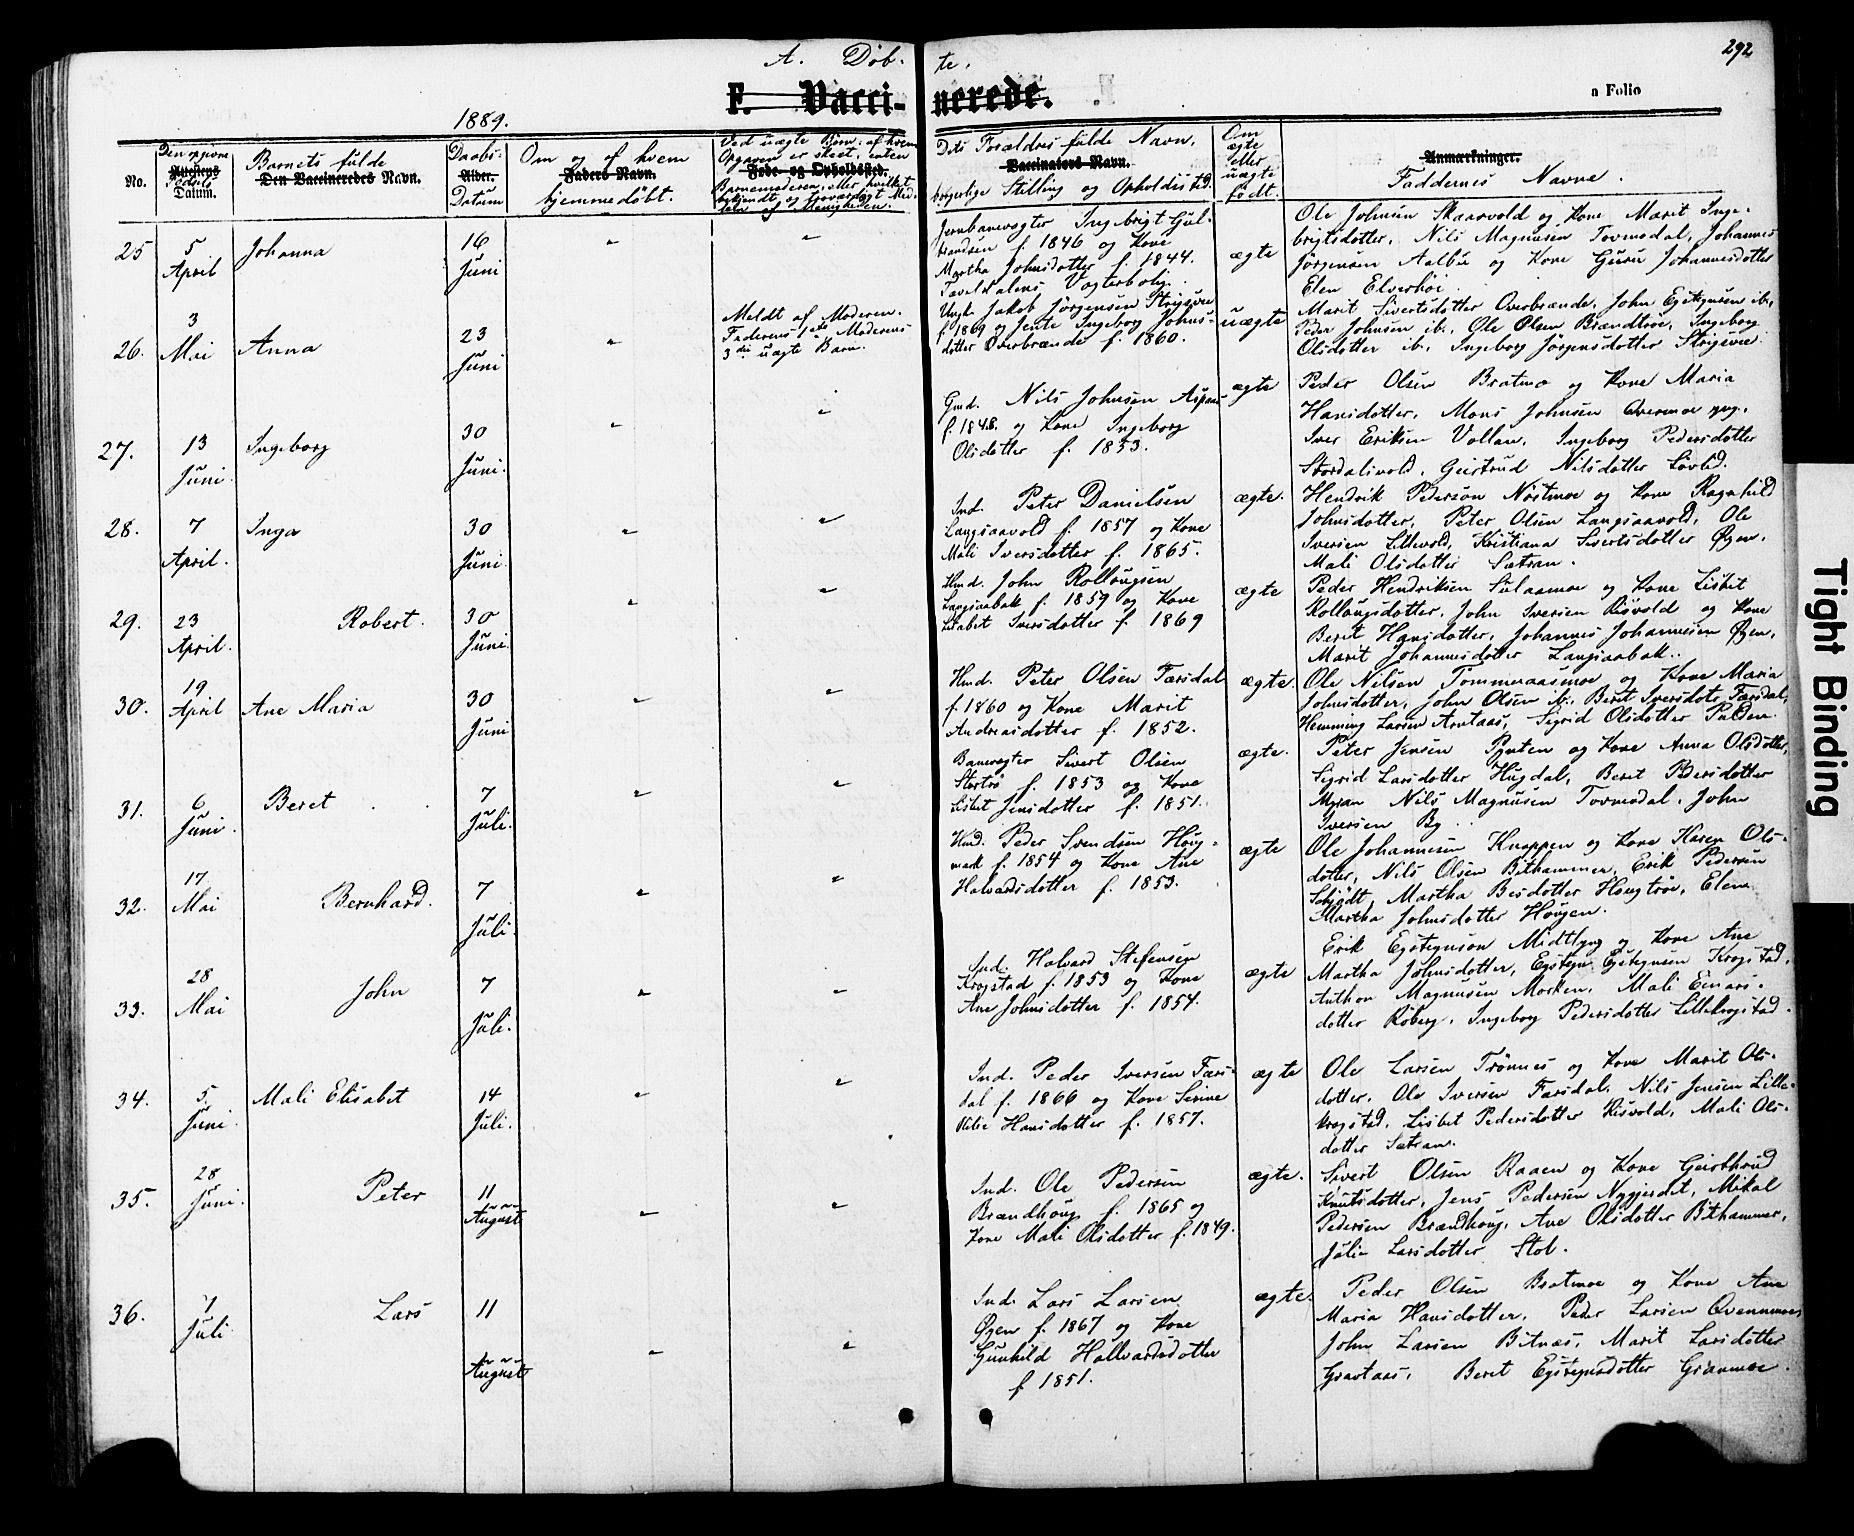 292
A. Döb- te.
F. Vacci- nerede.
a Folio
1889.
No.
Den opgivne
Attestens
Fødsels
Datum.
Barnets fulde
Den Vaccineredes Navn.
Daabs-
Alder.
Datum
Om og af hvem
Faders Navn.
hjemmedöbt.
Ved uægte Børn: af hvem
Opgaven er skeet, enten
Føde- og Opholdssted.
Barnemoderen, eller hvilket
bekjendt og troværdigt Med-
lem af Menigheden.
Dets Forældres fulde Navn,
Vaccinators Navn.
borgerlige Stilling og Opholdssted.
Om
ægte
eller
uægte
født.
Anmærkninger.
Faddernes Navne.
25
5
April
Johanna
16
Juni
Jernbanevogter Ingebrigt Gul-
brandsen f. 1846 og Kone
Martha Johnsdotter f. 1844.
Teveldalens Vogterbolig.
ægte
Ole Johnsen Skaarvold og Kone Marit Inge-
brigtsdotter, Nils Magnusen Tovmodal, Johannes
Jörgensen Aalbu og Kone Guru Johannesdotter
Elen Elverhöi.
26.
3
Mai
Anna
23
Juni
Meldt af Moderen.
Faderens 1ste Moderens
3die uægte Barn.
Ungk. Jakob Jörgensen Strigsvee
f. 1869 og Jente Ingeborg Johns-
dotter Overbrænde f. 1860.
uægte
Marit Sivertsdotter Overbrænde, John Egstegnsen ib.,
Peder Johnsen ib., Ole Olsen Brandtröe, Ingeborg
Olsdotter ib., Ingeborg Jörgensdotter Strigsvee.
27.
13
Juni.
Ingeborg
30
Juni.
Gmd. Nils Johnsen Aspaas
f. 1846. og Kone Ingeborg
Olsdotter f. 1853.
ægte
Peder Olsen Bratmo og Kone Maria
Hansdotter, Mons Johnsen Overmoe yng.
Iver Eriksen Vollan, Ingeborg Pedersdotter
Stordalsvold, Geirtrud Nilsdotter Lövld.
28.
7
April.
Inga
30
Juni.
Ind. Peter Danielsen
Langsaavold f. 1857 og Kone
Mali Iversdotter f. 1865.
ægte.
Hendrik Pederson Nöstmoe og Kone Ragnhild
Johnsdotter, Peter Olsen Langsaavold, Ole
Iversen Lillevold, Kristiana Sivertsdotter Øgen,
Mali Olsdotter Sætran.
29.
23
April.
Robert.
30
Juni.
Hmd. John Rollaugsen
Langsaabak f. 1859 og Kone
Lisabet Iversdotter f. 1869
ægte
Peder Hendriksen Sulaamoe og Kone Lisbet
Rollaugsdotter, John Iversen Risvold og Kone
Beret Hansdotter, Johannes Johannesen Øgen,
Marit Johannesdotter Langsaabak.
30.
19
April
Ane Maria
30
Juni
Hmd. Peter Olsen Færsdal
f. 1860 og Kone Marit
Andreasdotter f. 1852.
ægte.
Ole Nilsen Tømmeraasmoe og Kone Maria
Johnsdotter, John Olsen ib., Beret Iversdots. Færsdal,
Hemming Larsen Arntaas, Sigrid Olsdotter Pulden.
31.
6
Juni.
Beret
7
Juli.
Banevogter Sivert Olsen
Stortrö f. 1853 og Kone
Lisbet Jensdotter f. 1851.
ægte.
Peter Jensen Pynten og Kone Anna Olsdotter,
Sigrid Larsdotter Hugdal, Beret Pedersdotter
Myran Nils Magnusen Tovmodal, John
Iversen By.
32.
17
Mai
Bernhard.
7
Juli.
Hmd. Peder Svendsen Houg-
mark f. 1854 og Kone Ane
Halvardsdotter f. 1853.
ægte
Ole Johannesen Knoppen og Kone Karen Ols-
dotter, Nils Olsen Bithammer, Erik Pedersen
Schjödt, Martha Besdotter Hougtröe, Elena
Martha Johnsdotter Hougen.
33.
28
Mai
John
7
Juli.
Ind. Halvard Stefensen
Krogstad f. 1853 og Kone
Ane Johnsdotter f. 1854.
ægte
Erik Egstegnson Midtlyng og Kone Ane
Martha Johnsdotter, Egstegn Egstegnsen Krogstad,
Anthon Magnusen Morken, Mali Einars-
dotter Röberg, Ingeborg Pedersdotter Lillekrogstad.
34.
5.
Juni.
Mali Elisabet
14
Juli.
Ind. Peder Iversen Færs-
dal f. 1866 og Kone Serine
Oelie Hansdotter f. 1857.
ægte
Ole Larsen Trönnes og Kone Marit Ols-
dotter, Ole Iversen Færsdal, Nils Jensen Lille-
krogstad, Lisbet Pedersdotter Risvold, Mali Ols-
dotter Sætran.
35.
28
Juni.
Peter
11
August
Ind. Ole Pedersen
Brændhoug f. 1865 og
Kone Mali Olsdotter f. 1849.
ægte.
Sivert Olsen Raaen og Kone Geirthrud
Knutsdotter, Jens Pedersen Nygjerdet, Mikal
Pedersen Brændhoug, Ane Olsdotter Bithammer,
Julie Larsdotter Stob.
36.
7
Juli.
Lars
11
August
Ind. Lars Larsen
Øgen f. 1867 og Kone
Gunhild Hallvardsdotter
f 1851.
ægte.
Peder Olsen Bratmoe og Kone Ane
Maria Hansdotter, Peder Larsen Ovenmoe,
John Larsen Bitnæs, Marit Larsdotter
Gravtaas, Beret Egstegnsdotter Granmoe.
Tight Binding